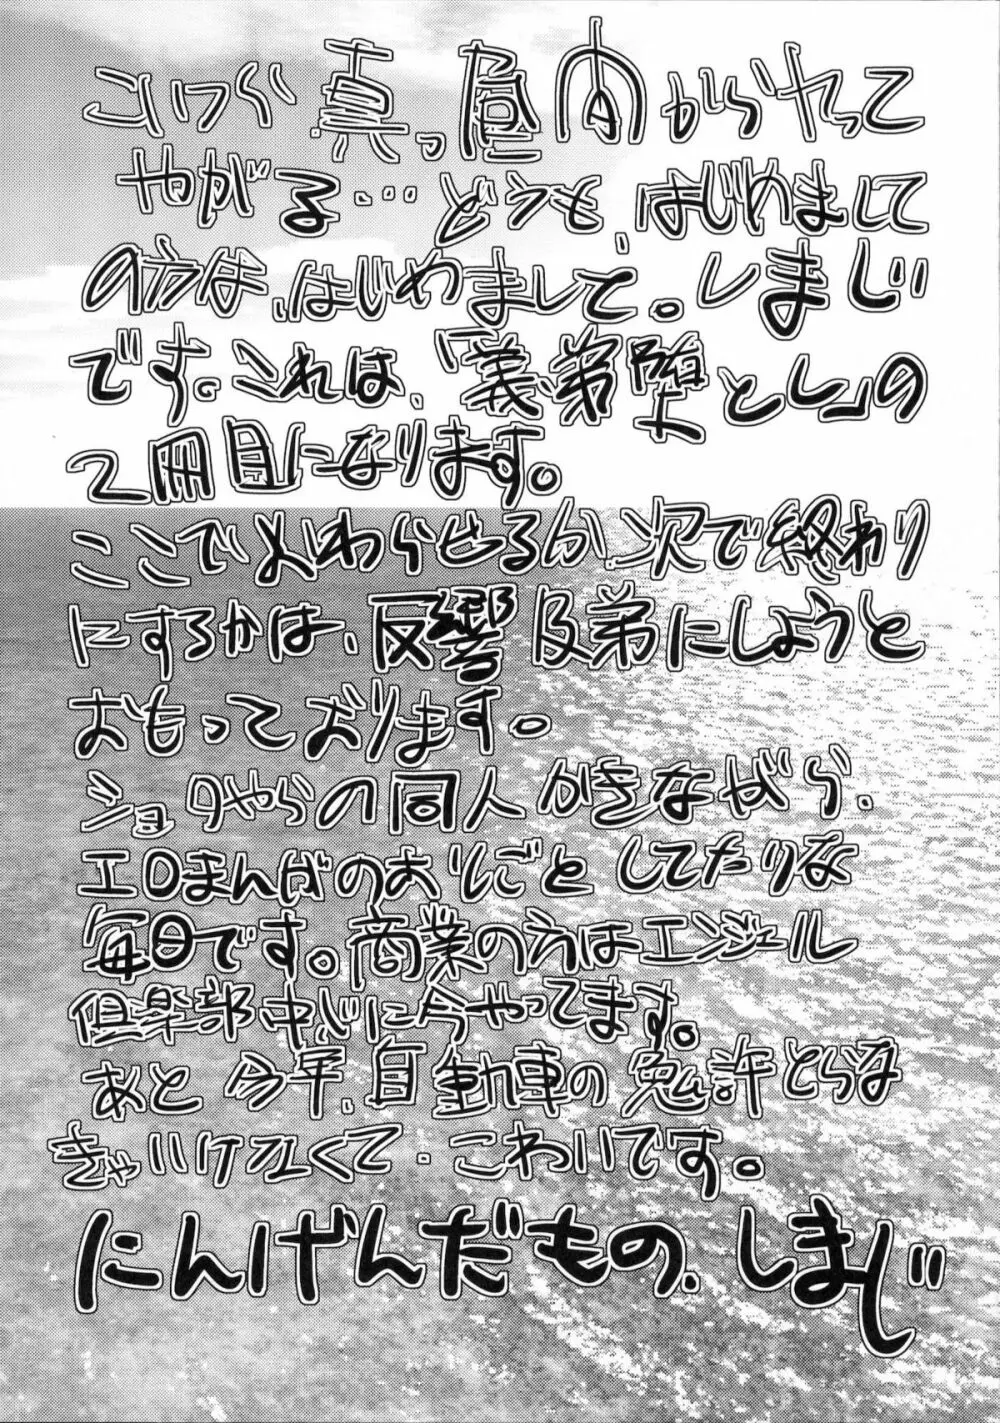 こいつら真っ昼間からヤって
やがる…どうも、はじめまして
の方は、はじめまして。しまじ
です。これは、「義弟堕とし」の
2冊目になります。
ここでおわらせるか次で終わり
にするかは、反響及第にしようと
おもっております。
ショタやらの同人かきながら、
エロまんがのおしごとしてたりな
毎日です。商業の方はエンジェル
倶楽部中心に今やってます。
あと今年、自動車の免許とらな
きゃいけなくて…こわいです。
にんげんだもの、しまじ